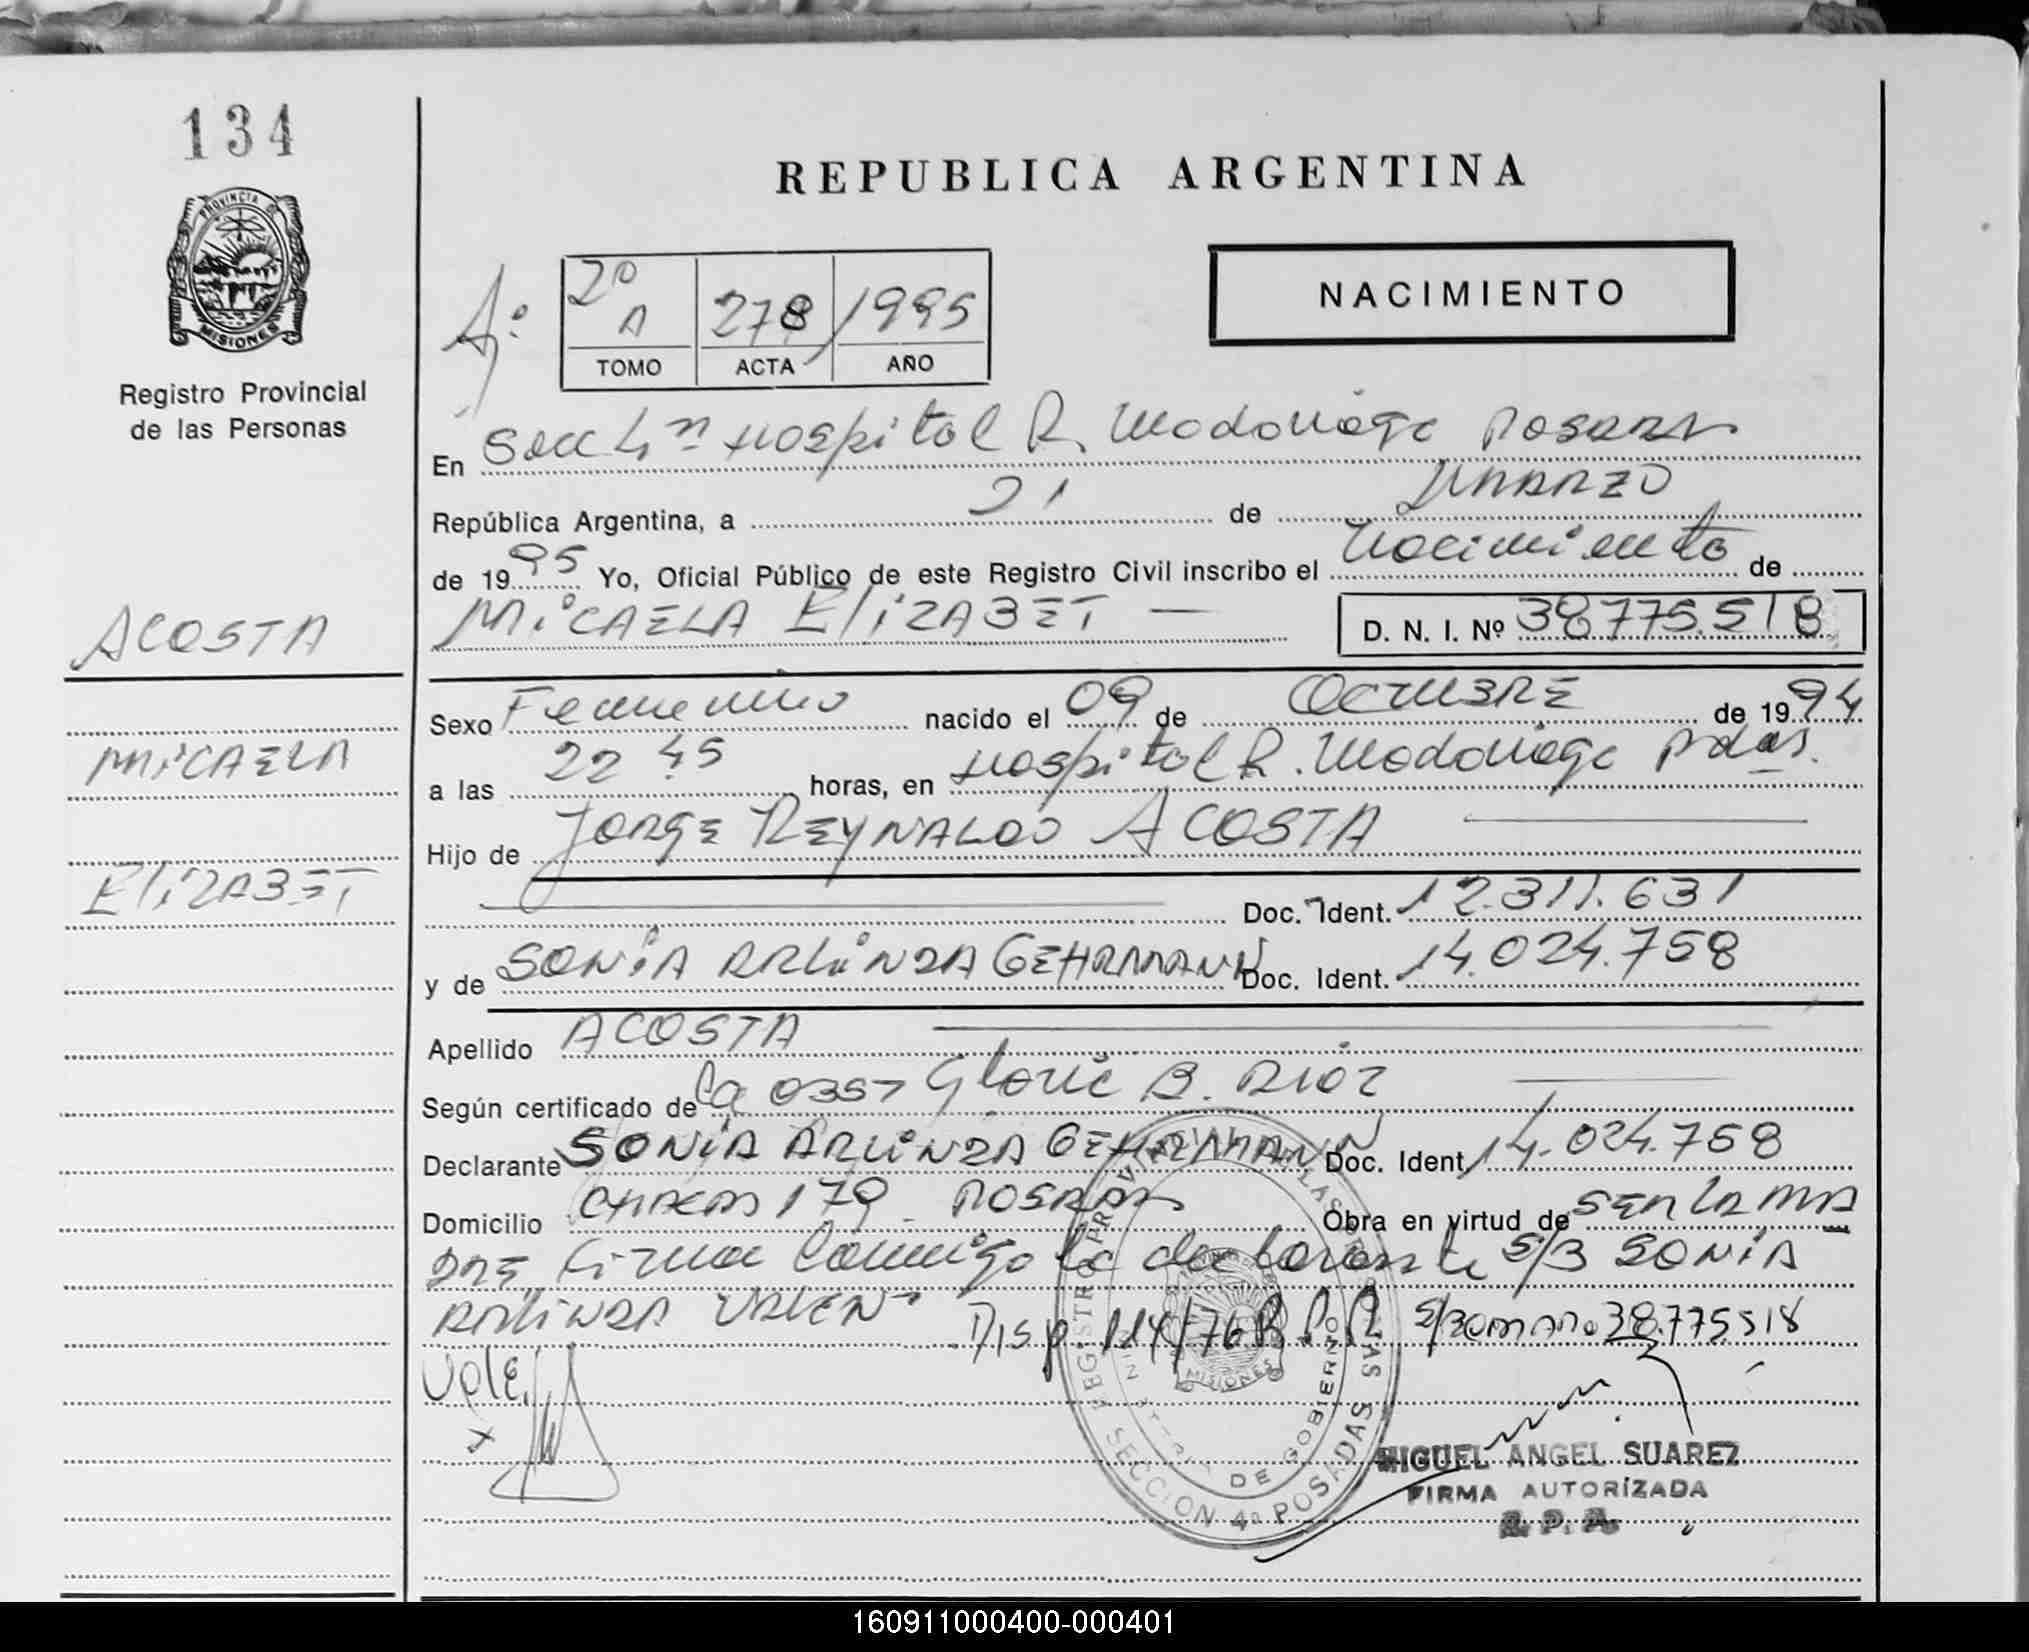 134
PROVINCIA DE
MISIONES
Registro Provincial
de las Personas
ACOSTA
MICAELA
ELIZABET
REPUBLICA ARGENTINA
2º A 278 1995
TOMO ACTA AÑO
NACIMIENTO
En Secc 4ª Hospital R. Madariaga Posadas
República Argentina, a 21 de MARZO
de 1995 Yo, Oficial Público de este Registro Civil inscribo el Nacimiento de
MICAELA ELIZABET — D. N. I. Nº 38775.518
Sexo Femenino nacido el 09 de OCTUBRE de 1994
a las 22 45 horas, en Hospital R. Madariaga Pdas.
Hijo de JORGE REYNALDO ACOSTA
Doc. Ident. 12.311.631
y de SONIA ARLINDA GEHRMANN Doc. Ident. 14.024.758
Apellido ACOSTA
Según certificado de Gloria B. DIAZ
Declarante SONIA ARLINDA GEHRMANN Doc. Ident. 14.024.758
Domicilio 179 POSADAS Obra en virtud de SER LA MA
DRE Firma Conmigo la declarante S/B SONIA
ARLINDA VALEN
Disp 114/76 R.P.P. S/B 38.775518
Vale.
REGISTRO PROVINCIAL DE LAS PERSONAS
MISIONES
DE GOBIERNO
SECCION 4ª POSADAS
MIGUEL ANGEL SUAREZ
FIRMA AUTORIZADA
R. P. P.
160911000400-000401